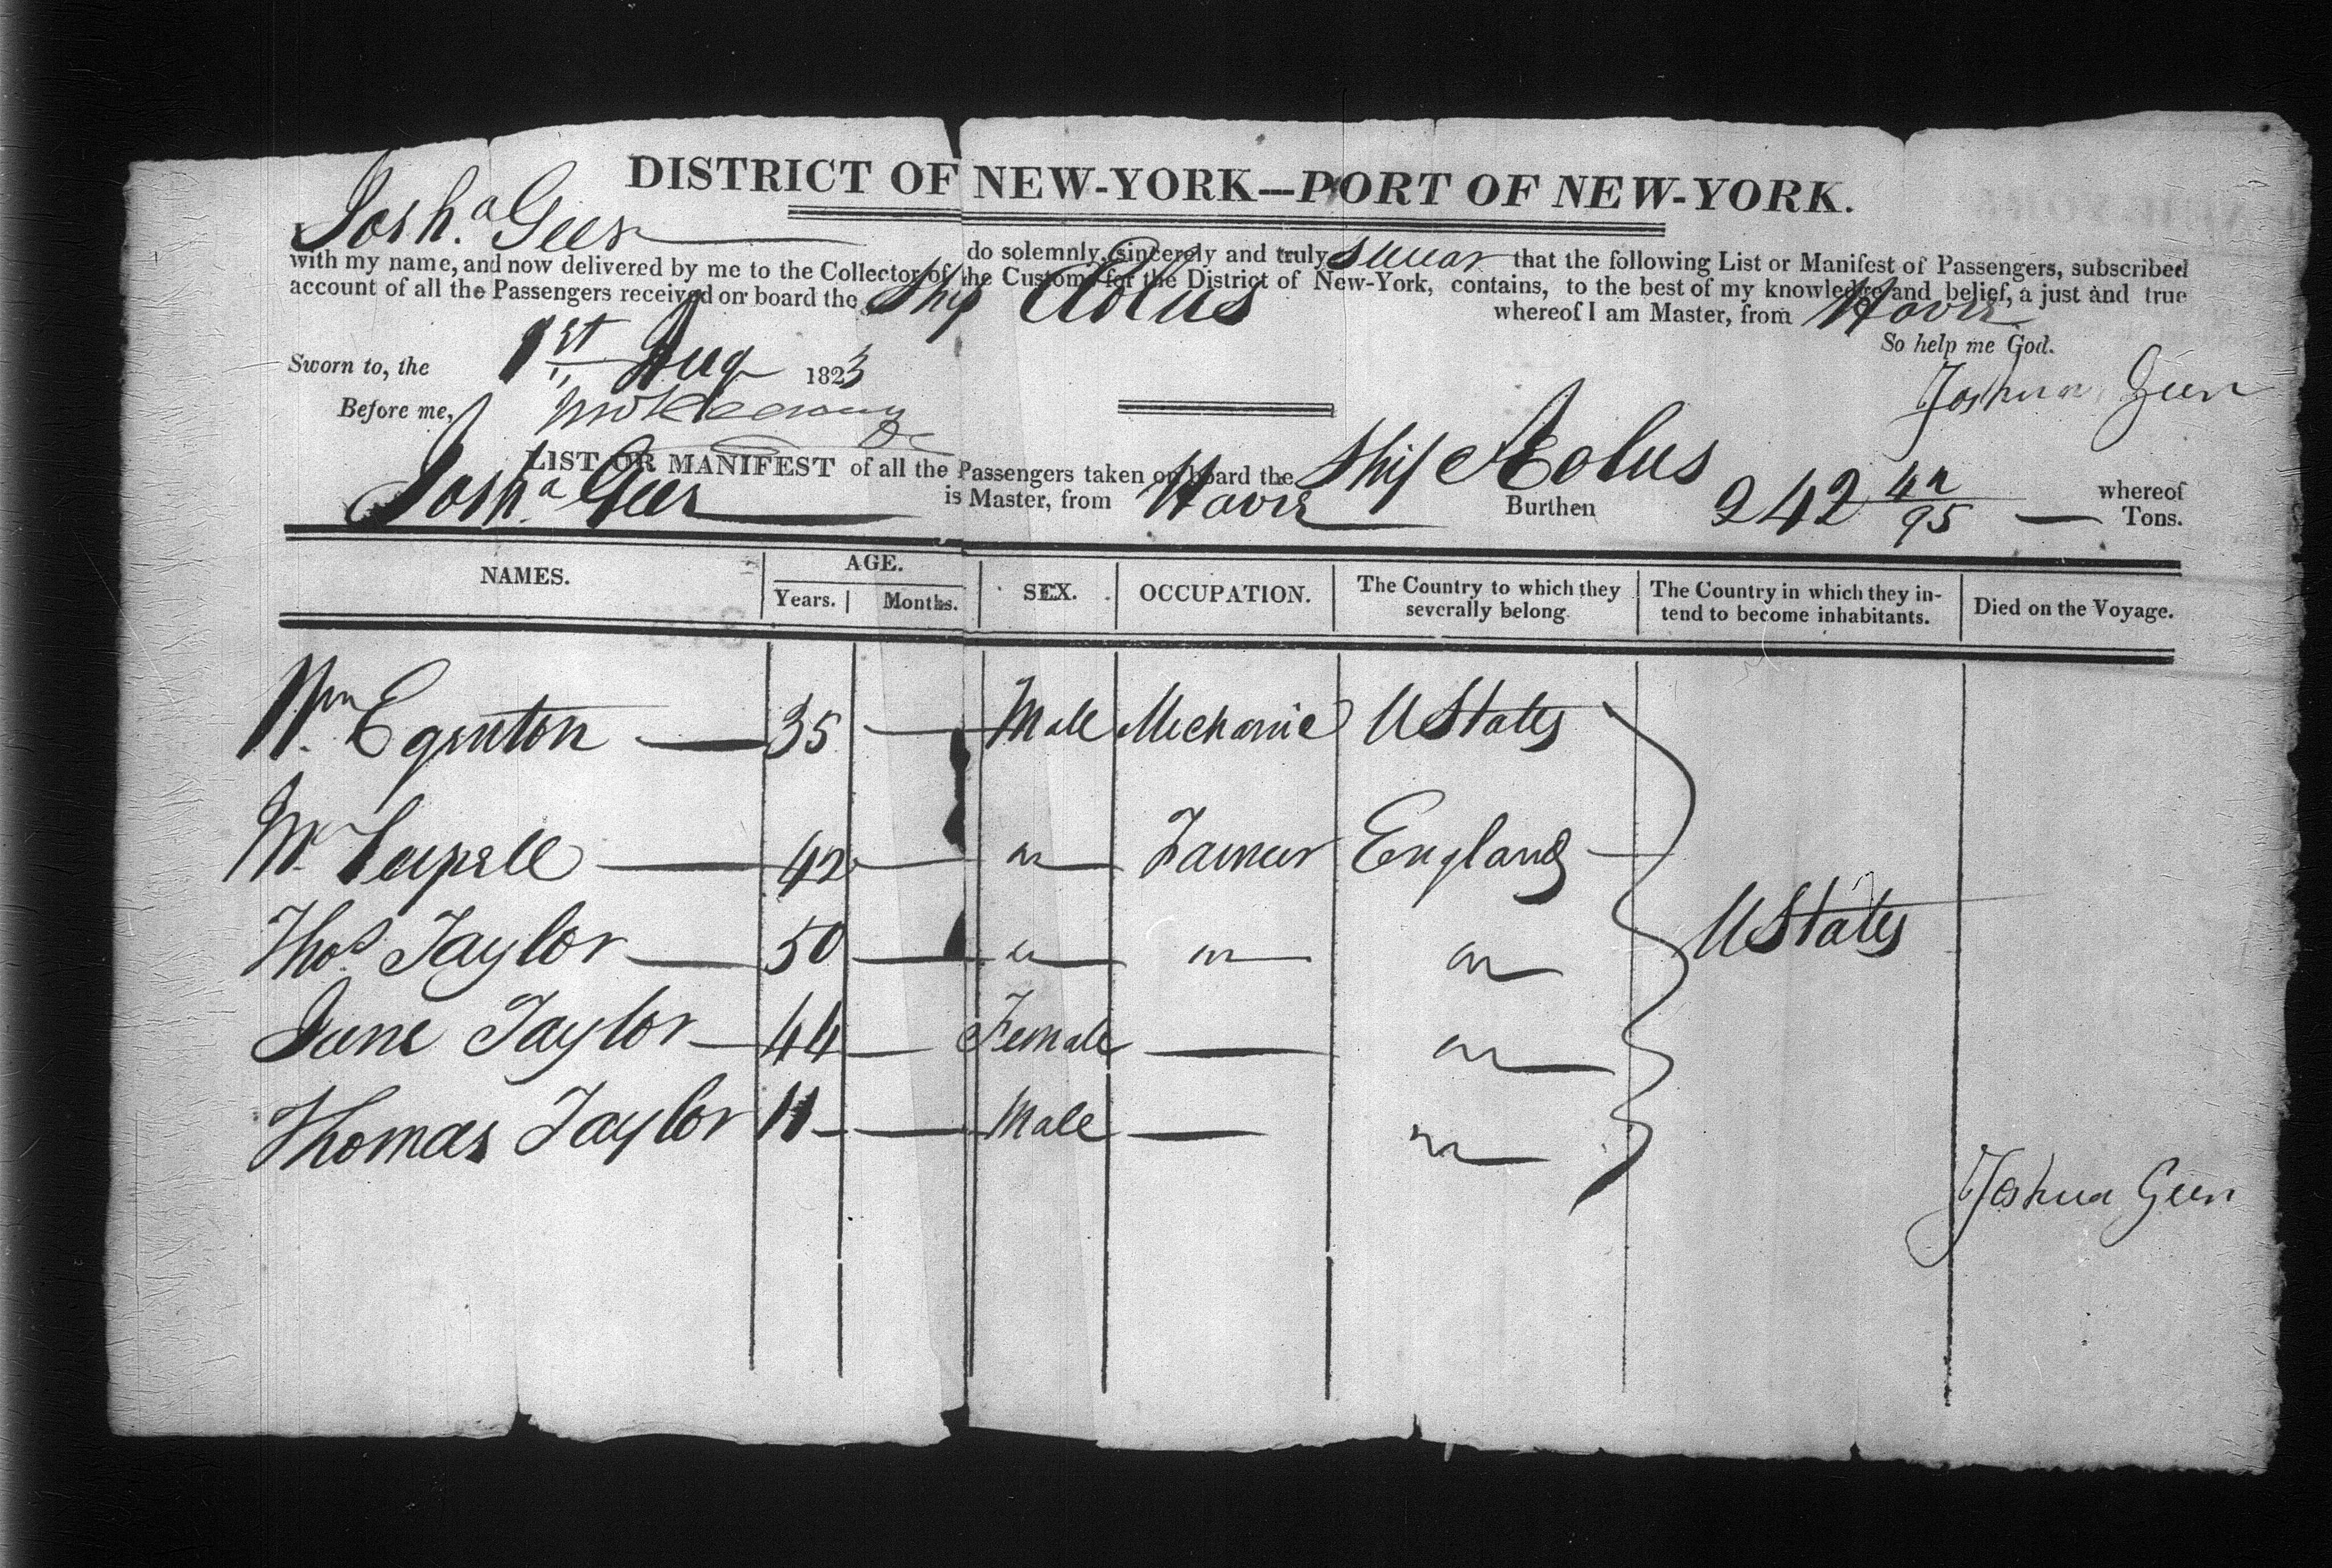 DISTRICT OF NEW-YORK—PORT OF NEW-YORK.
Josh.a Geer do solemnly, sincerely and truly swear that the following List or Manifest of Passengers, subscribed
with my name, and now delivered by me to the Collector of the Customs for the District of New-York, contains, to the best of my knowledge and belief, a just and true
account of all the Passengers received on board the Ship Eolus whereof I am Master, from Havre
So help me God.
Sworn to, the 1st Aug 1823
Joshua Geer
Before me,
LIST OR MANIFEST of all the Passengers taken on board the Ship Æolus whereof
Josh.a Geer is Master, from Havre Burthen 242 42/95 Tons.
NAMES. AGE. SEX. OCCUPATION. The Country to which they severally belong. The Country in which they intend to become inhabitants. Died on the Voyage.
Years. Months.
Wm Egenton — 35 — Male Mechanic U States
Mr — 42 — " — Farmer England
Thos Taylor — 50 — " — " — " —
U States
Jane Taylor — 44 — Female — " —
Thomas Taylor 11 — — Male — " —
Joshua Geer